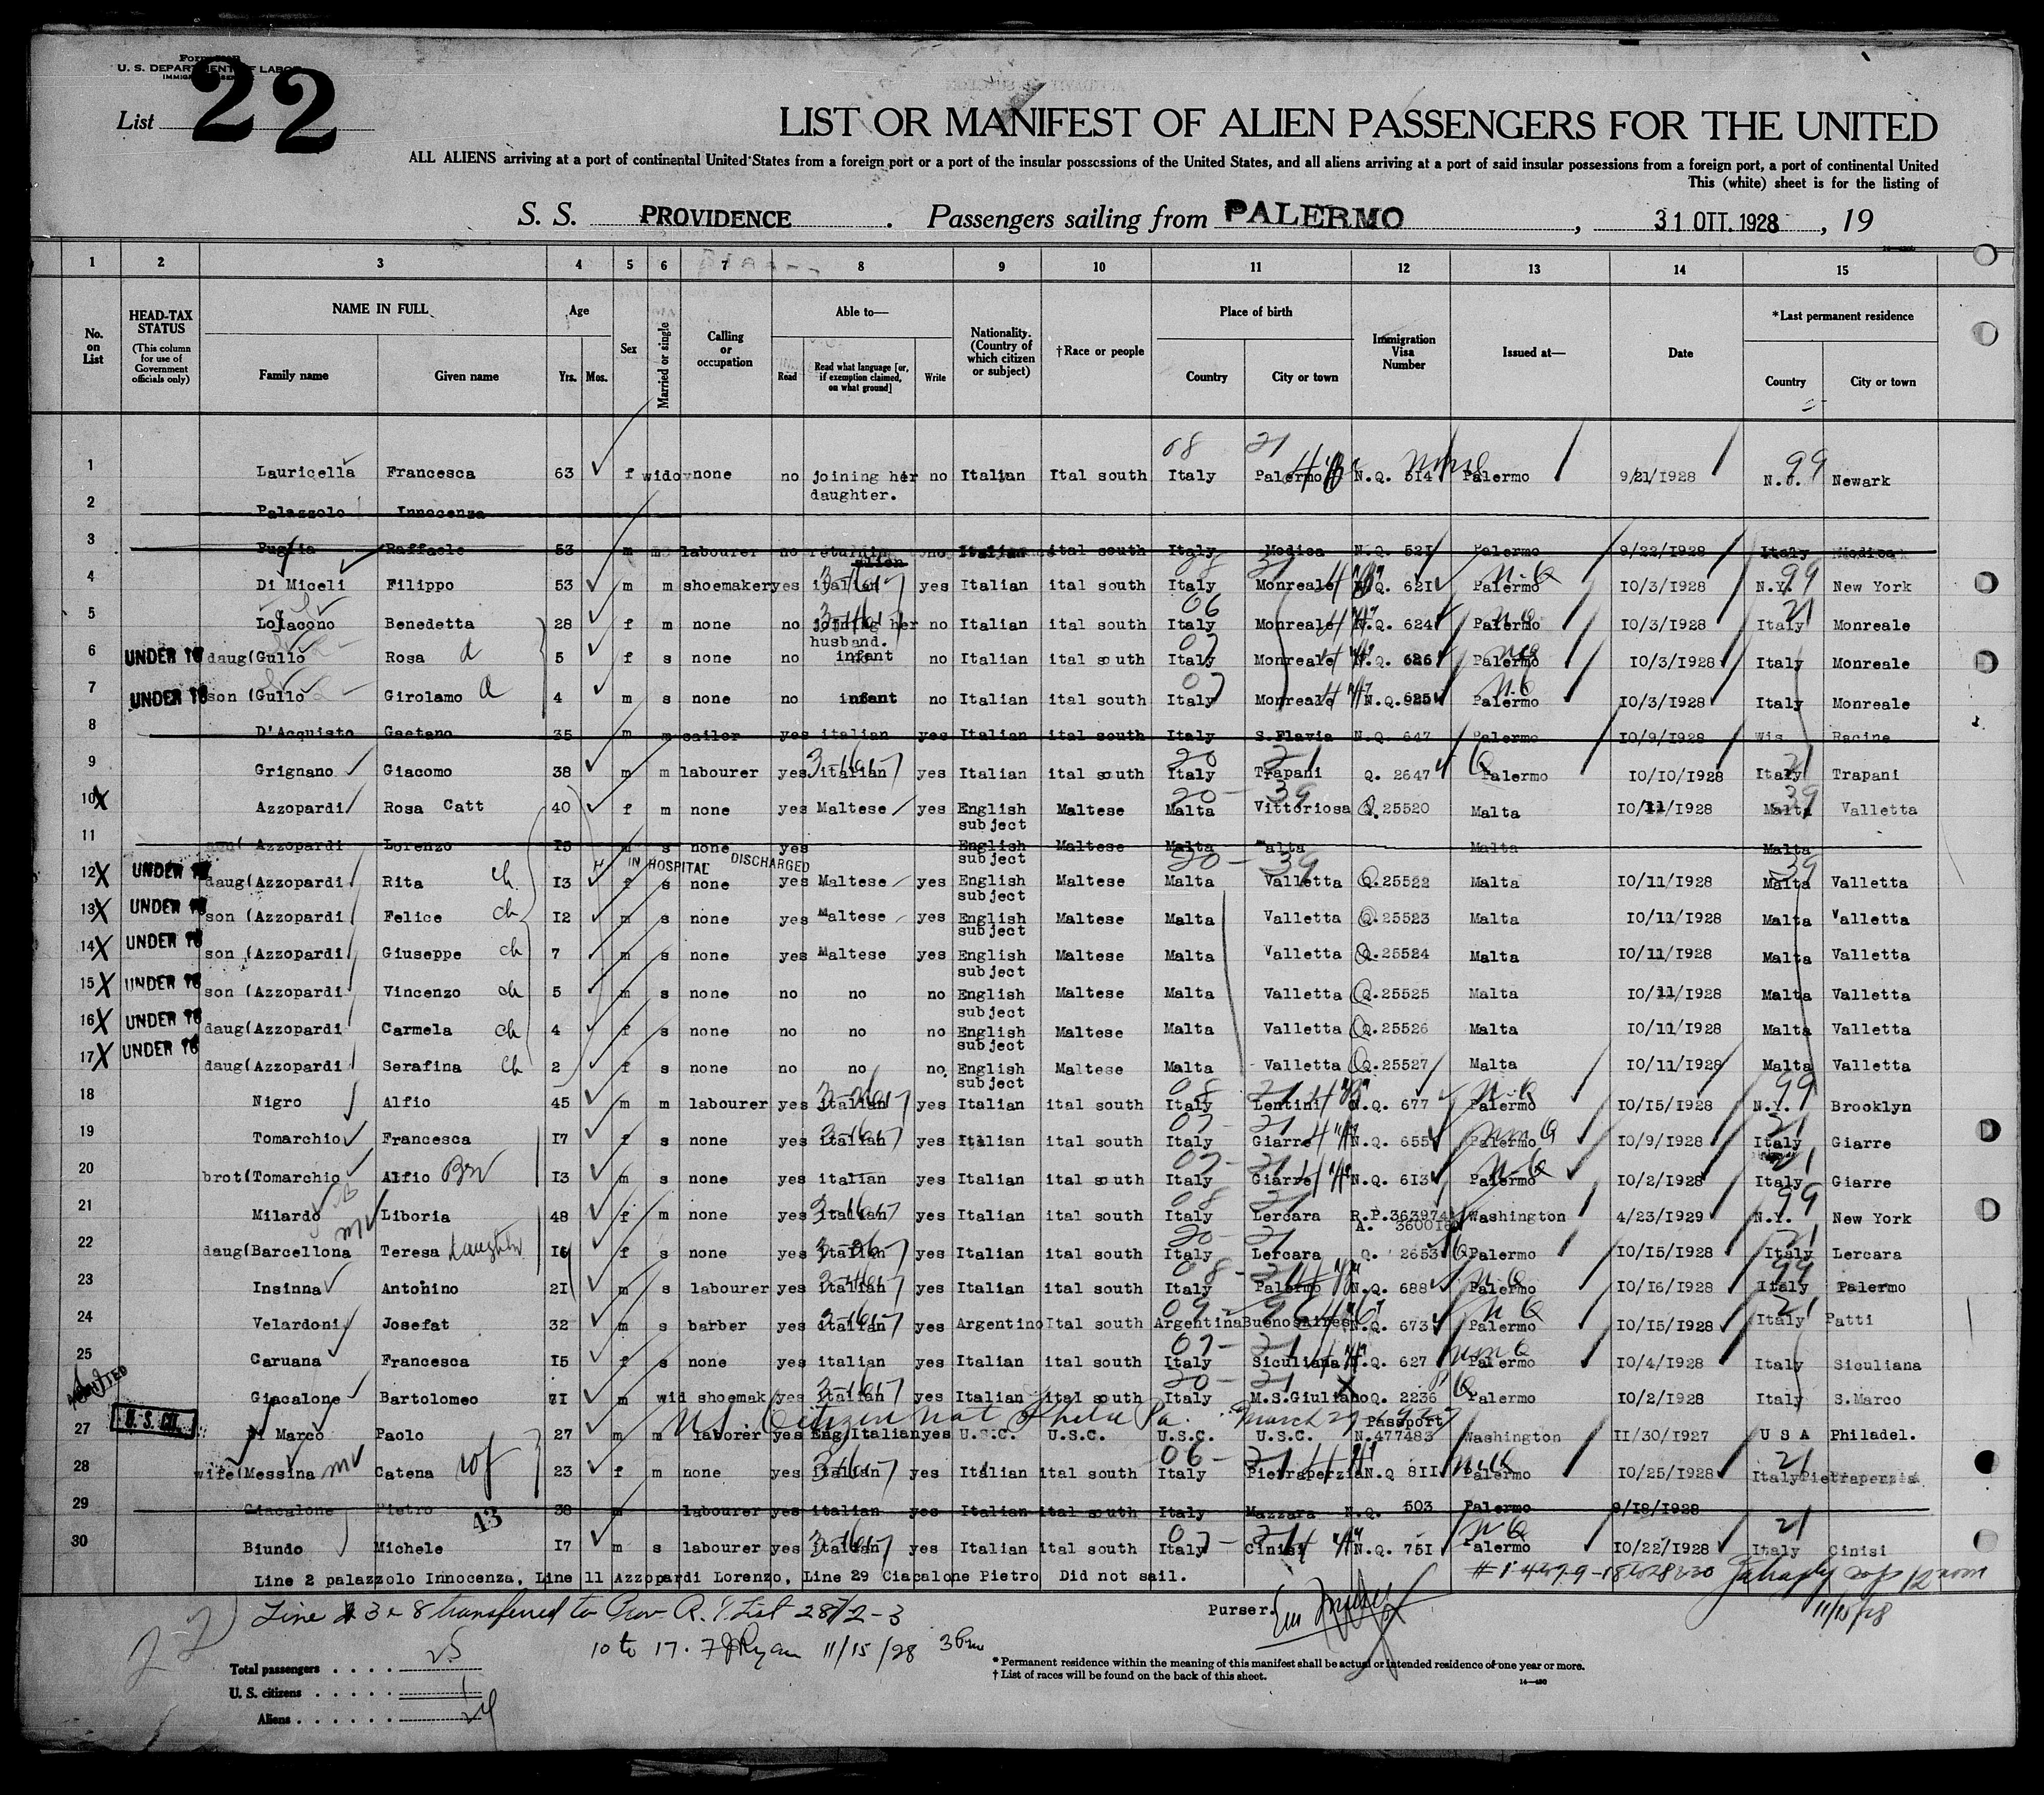 Form
U. S. DEPARTMENT OF LABOR
List 22
LIST OR MANIFEST OF ALIEN PASSENGERS FOR THE UNITED
ALL ALIENS arriving at a port of continental United States from a foreign port or a port of the insular possessions of the United States, and all aliens arriving at a port of said insular possessions from a foreign port, a port of continental United
This (white) sheet is for the listing of
S. S. PROVIDENCE . Passengers sailing from PALERMO , 31 OTT. 1928 , 19
1 2 3 4 5 6 7 8 9 10 11 12 13 14 15
No. on List
HEAD-TAX STATUS (This column for use of Government officials only)
NAME IN FULL Family name Given name
Age Yrs. Mos.
Sex
Married or single
Calling or occupation
Able to— Read Read what language [or, if exemption claimed, on what ground] Write
Nationality. (Country of which citizen or subject)
†Race or people
Place of birth Country City or town
Immigration Visa Number
Issued at—
Date
*Last permanent residence Country City or town
1 Lauricella Francesca 63 f widow none no joining her daughter. no Italian Ital south Italy Palermo N.Q. 514 Palermo 9/21/1928 N.J. Newark
2 Palazzolo Innocenza
3 Puglia Raffaele 53 m m labourer no returning no Italian ital south Italy Modica N.Q. 521 Palermo 9/22/1928 Italy Modica
4 Di Miceli Filippo 53 m m shoemaker yes italian yes Italian ital south Italy Monreale N.Q. 621 Palermo 10/3/1928 N.Y. New York
5 LoIacono Benedetta 28 f m none no joining her husband. no Italian ital south Italy Monreale N.Q. 624 Palermo 10/3/1928 Italy Monreale
6 UNDER 16 daug(Gullo Rosa 5 f s none no infant no Italian ital south Italy Monreale N.Q. 626 Palermo 10/3/1928 Italy Monreale
7 UNDER 16 son (Gullo Girolamo 4 m s none no infant no Italian ital south Italy Monreale N.Q. 625 Palermo 10/3/1928 Italy Monreale
8 D'Acquisto Gaetano 35 m m sailor yes italian yes Italian ital south Italy S.Flavia N.Q. 647 Palermo 10/9/1928 Wis. Racine
9 Grignano Giacomo 38 m m labourer yes italian yes Italian ital south Italy Trapani Q. 2647 Palermo 10/10/1928 Italy Trapani
10 X Azzopardi Rosa Catt 40 f m none yes Maltese yes English subject Maltese Malta Vittoriosa Q.25520 Malta 10/11/1928 Malta Valletta
11 Azzopardi Lorenzo 15 m s none yes English subject Maltese Malta Malta Malta Malta
IN HOSPITAL DISCHARGED
12 X UNDER 16 daug(Azzopardi Rita ch 13 f s none yes Maltese yes English subject Maltese Malta Valletta Q.25522 Malta 10/11/1928 Malta Valletta
13 X UNDER 16 son (Azzopardi Felice ch 12 m s none yes Maltese yes English subject Maltese Malta Valletta Q.25523 Malta 10/11/1928 Malta Valletta
14 X UNDER 16 son (Azzopardi Giuseppe ch 7 m s none yes Maltese yes English subject Maltese Malta Valletta Q.25524 Malta 10/11/1928 Malta Valletta
15 X UNDER 16 son (Azzopardi Vincenzo ch 5 m s none no no no English subject Maltese Malta Valletta Q.25525 Malta 10/11/1928 Malta Valletta
16 X UNDER 16 daug(Azzopardi Carmela ch 4 f s none no no no English subject Maltese Malta Valletta Q.25526 Malta 10/11/1928 Malta Valletta
17 X UNDER 16 daug(Azzopardi Serafina ch 2 f s none no no no. English subject Maltese Malta Valletta Q.25527 Malta 10/11/1928 Malta Valletta
18 Nigro Alfio 45 m m labourer yes italian yes Italian ital south Italy Lentini N.Q. 677 Palermo 10/15/1928 N.Y. Brooklyn
19 Tomarchio Francesca 17 f s none yes italian yes Italian ital south Italy Giarre N.Q. 655 Palermo 10/9/1928 Italy Giarre
20 brot(Tomarchio Alfio Br 13 m s none yes italian yes Italian ital south Italy Giarre N.Q. 613 Palermo 10/2/1928 Italy Giarre
21 Milardo Liboria 48 f m none yes italian yes Italian ital south Italy Lercara R.P.363974 Washington 4/23/1929 N.Y. New York
22 daug(Barcellona Teresa daughter 16 f s none yes italian yes Italian ital south Italy Lercara Q. 2653 Palermo 10/15/1928 Italy Lercara
23 Insinna Antonino 21 m s labourer yes italian yes Italian ital south Italy Palermo N.Q. 688 Palermo 10/16/1928 Italy Palermo
24 Velardoni Josefat 32 m s barber yes italian yes Argentino Ital south Argentina Buenos Aires N.Q. 673 Palermo 10/15/1928 Italy Patti
25 Caruana Francesca 15 f s none yes italian yes Italian ital south Italy Siculiana N.Q. 627 Palermo 10/4/1928 Italy Siculiana
ADMITTED Giacalone Bartolomeo 71 m wid shoemak yes italian yes Italian ital south Italy M.S.Giuliano Q. 2236 Palermo 10/2/1928 Italy S.Marco
U.S. Citizen nat Phila Pa. March 27
27 U. S. Cit. Di Marco Paolo 27 m m laborer yes Eng Italian yes U.S.C. U.S.C. U.S.C. U.S.C. Passport N.477483 Washington 11/30/1927 U S A Philadel.
28 wife(Messina Catena wf 23 f m none yes italian yes Italian ital south Italy Pietraperzia N.Q 811 Palermo 10/25/1928 Italy Pietraperzia
29 Giacalone Pietro 43 38 m labourer yes italian yes Italian ital south Italy Mazzara N.Q. 503 Palermo 9/18/1928
30 Biundo Michele 17 m s labourer yes italian yes Italian ital south Italy Cinisi N.Q. 751 Palermo 10/22/1928 Italy Cinisi
Line 2 palazzolo Innocenza, Line 11 Azzopardi Lorenzo, Line 29 Ciacalone Pietro Did not sail.
Line 3 & 8 transferred to Prov. R.I. List 28/2-3
Purser.
11/15/28
10 to 17. F J Ryan 11/15/28 3 Pm
22
Total passengers . . . . 25
U. S. citizens . . . . . 1
Aliens . . . . . . 24
* Permanent residence within the meaning of this manifest shall be actual or intended residence of one year or more.
† List of races will be found on the back of this sheet.